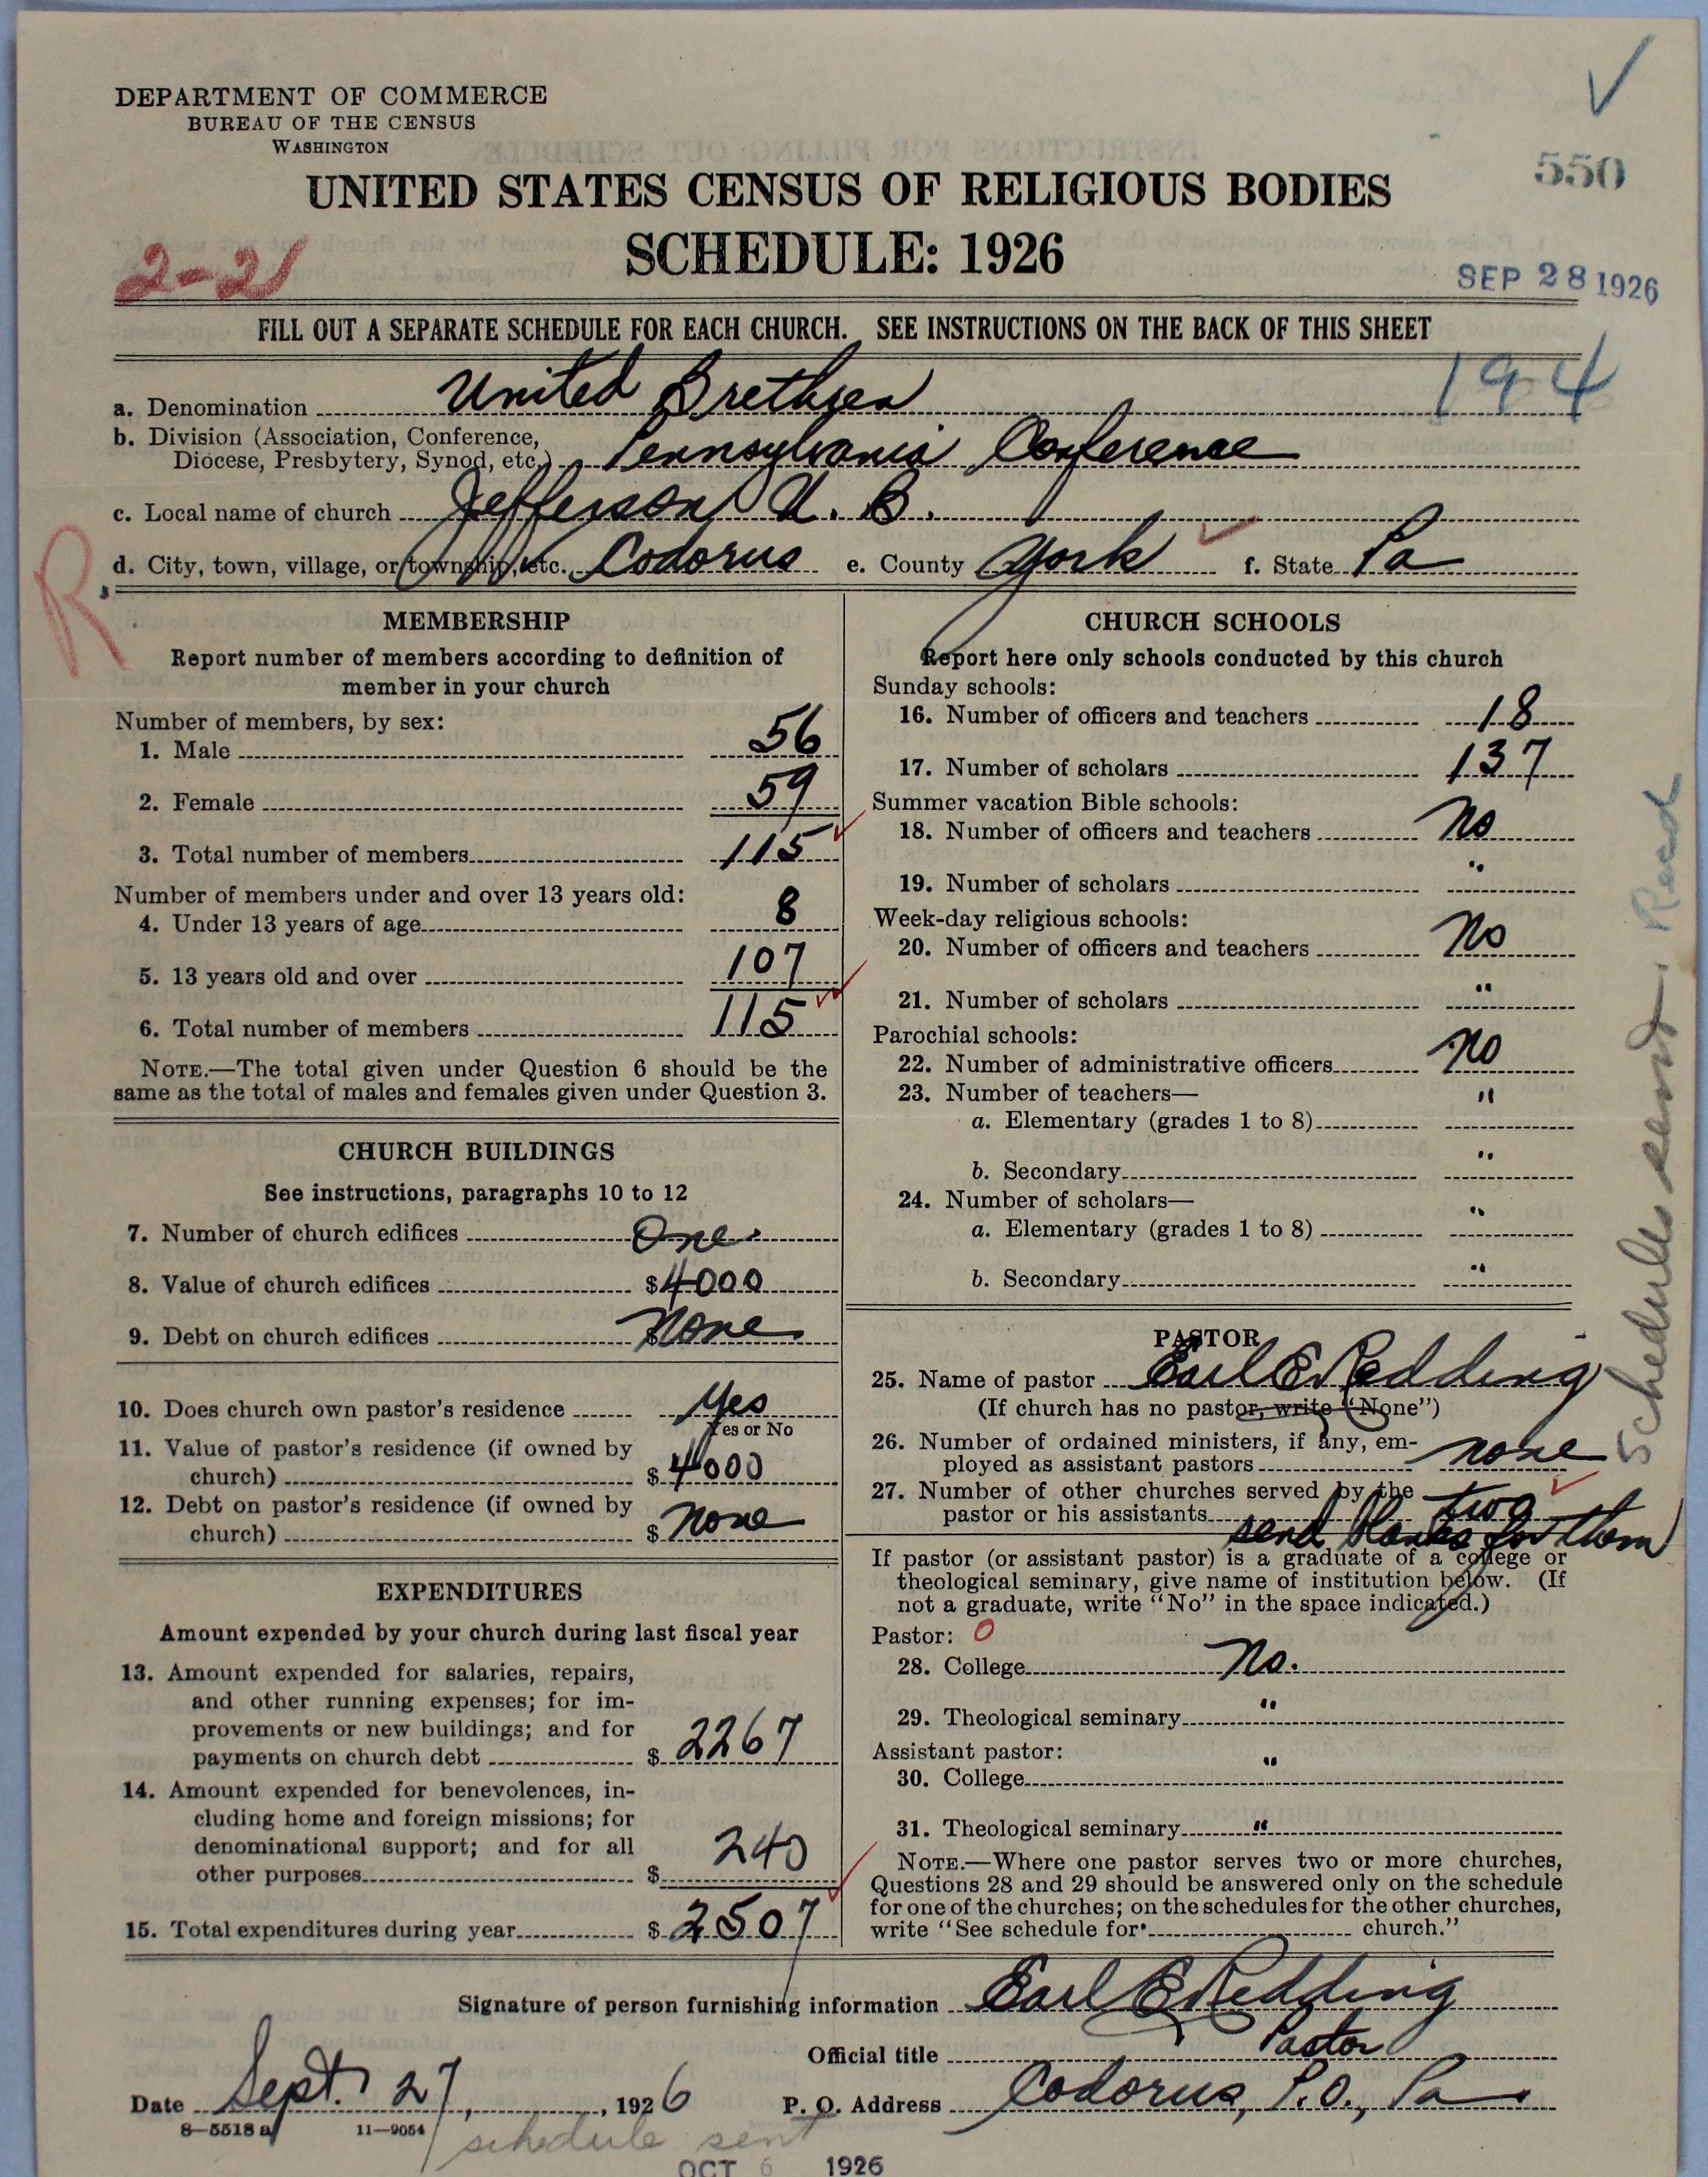 DEPARTMENT OF COMMERCE
BUREAU OF THE CENSUS
WASHINGTON
550
UNITED STATES CENSUS OF RELIGIOUS BODIES
2-21
SCHEDULE: 1926
SEP 28 1926
FILL OUT A SEPARATE SCHEDULE FOR EACH CHURCH. SEE INSTRUCTIONS ON THE BACK OF THIS SHEET
194
a. Denomination United Brethren
b. Division (Association, Conference,
Diocese, Presbytery, Synod, etc.) Pennsylvania Conference
c. Local name of church Jefferson U. B.
d. City, town, village, or township, etc. Codorus e. County York f. State Pa
R
MEMBERSHIP
Report number of members according to definition of
member in your church
Number of members, by sex:
1. Male 56
2. Female 59
3. Total number of members 115
Number of members under and over 13 years old:
4. Under 13 years of age 8
5. 13 years old and over 107
6. Total number of members 115
NOTE.—The total given under Question 6 should be the
same as the total of males and females given under Question 3.
CHURCH BUILDINGS
See instructions, paragraphs 10 to 12
7. Number of church edifices One
8. Value of church edifices $4000
9. Debt on church edifices $ None
10. Does church own pastor's residence Yes
Yes or No
11. Value of pastor's residence (if owned by
church) $4000
12. Debt on pastor's residence (if owned by
church) $ None
EXPENDITURES
Amount expended by your church during last fiscal year
13. Amount expended for salaries, repairs,
and other running expenses; for im-
provements or new buildings; and for
payments on church debt $ 2267
14. Amount expended for benevolences, in-
cluding home and foreign missions; for
denominational support; and for all
other purposes $ 240
15. Total expenditures during year $ 2507
CHURCH SCHOOLS
Report here only schools conducted by this church
Sunday schools:
16. Number of officers and teachers 18
17. Number of scholars 137
Summer vacation Bible schools:
18. Number of officers and teachers No
19. Number of scholars "
Week-day religious schools:
20. Number of officers and teachers No
21. Number of scholars "
Parochial schools:
22. Number of administrative officers No
23. Number of teachers— "
a. Elementary (grades 1 to 8)
b. Secondary "
24. Number of scholars—
a. Elementary (grades 1 to 8) "
b. Secondary "
PASTOR
25. Name of pastor Earl E Redding
(If church has no pastor, write "None")
26. Number of ordained ministers, if any, em-
ployed as assistant pastors none
27. Number of other churches served by the
pastor or his assistants two
send blanks for them
If pastor (or assistant pastor) is a graduate of a college or
theological seminary, give name of institution below. (If
not a graduate, write "No" in the space indicated.)
Pastor: 0
28. College No.
29. Theological seminary "
Assistant pastor:
30. College "
31. Theological seminary "
NOTE.—Where one pastor serves two or more churches,
Questions 28 and 29 should be answered only on the schedule
for one of the churches; on the schedules for the other churches,
write "See schedule for church."
Schedules sent. Recd
Signature of person furnishing information Earl E Redding
Official title Pastor
Date Sept. 27, 1926 P. O. Address Codorus, P.O., Pa.
8—5518 a 11—9054
schedule sent
OCT 6 1926